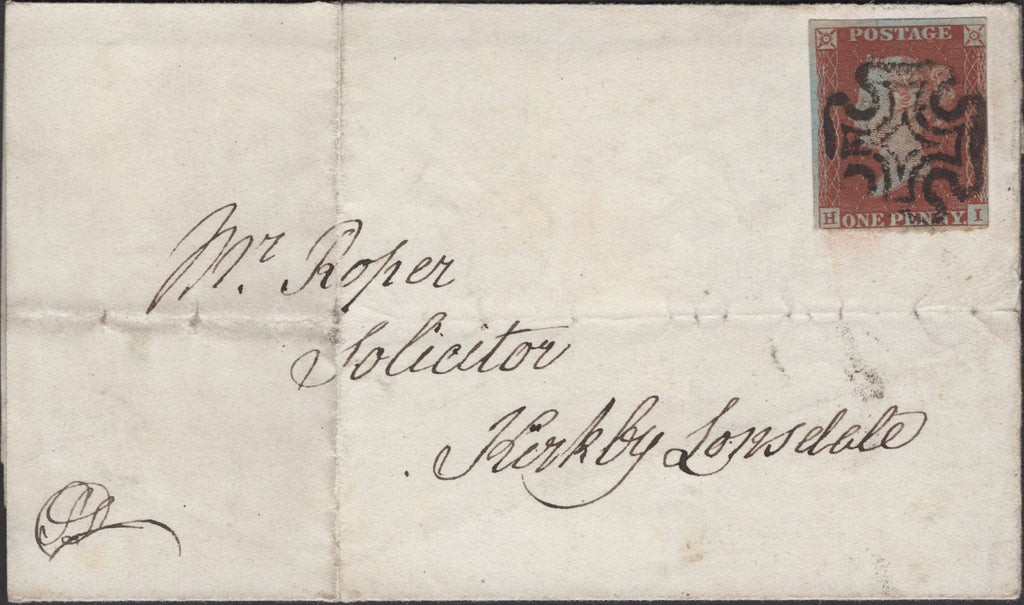 POSTAGE
H ONE PENNY. I
Mr. Roper
Solicitor
Kirkby Lonsdale